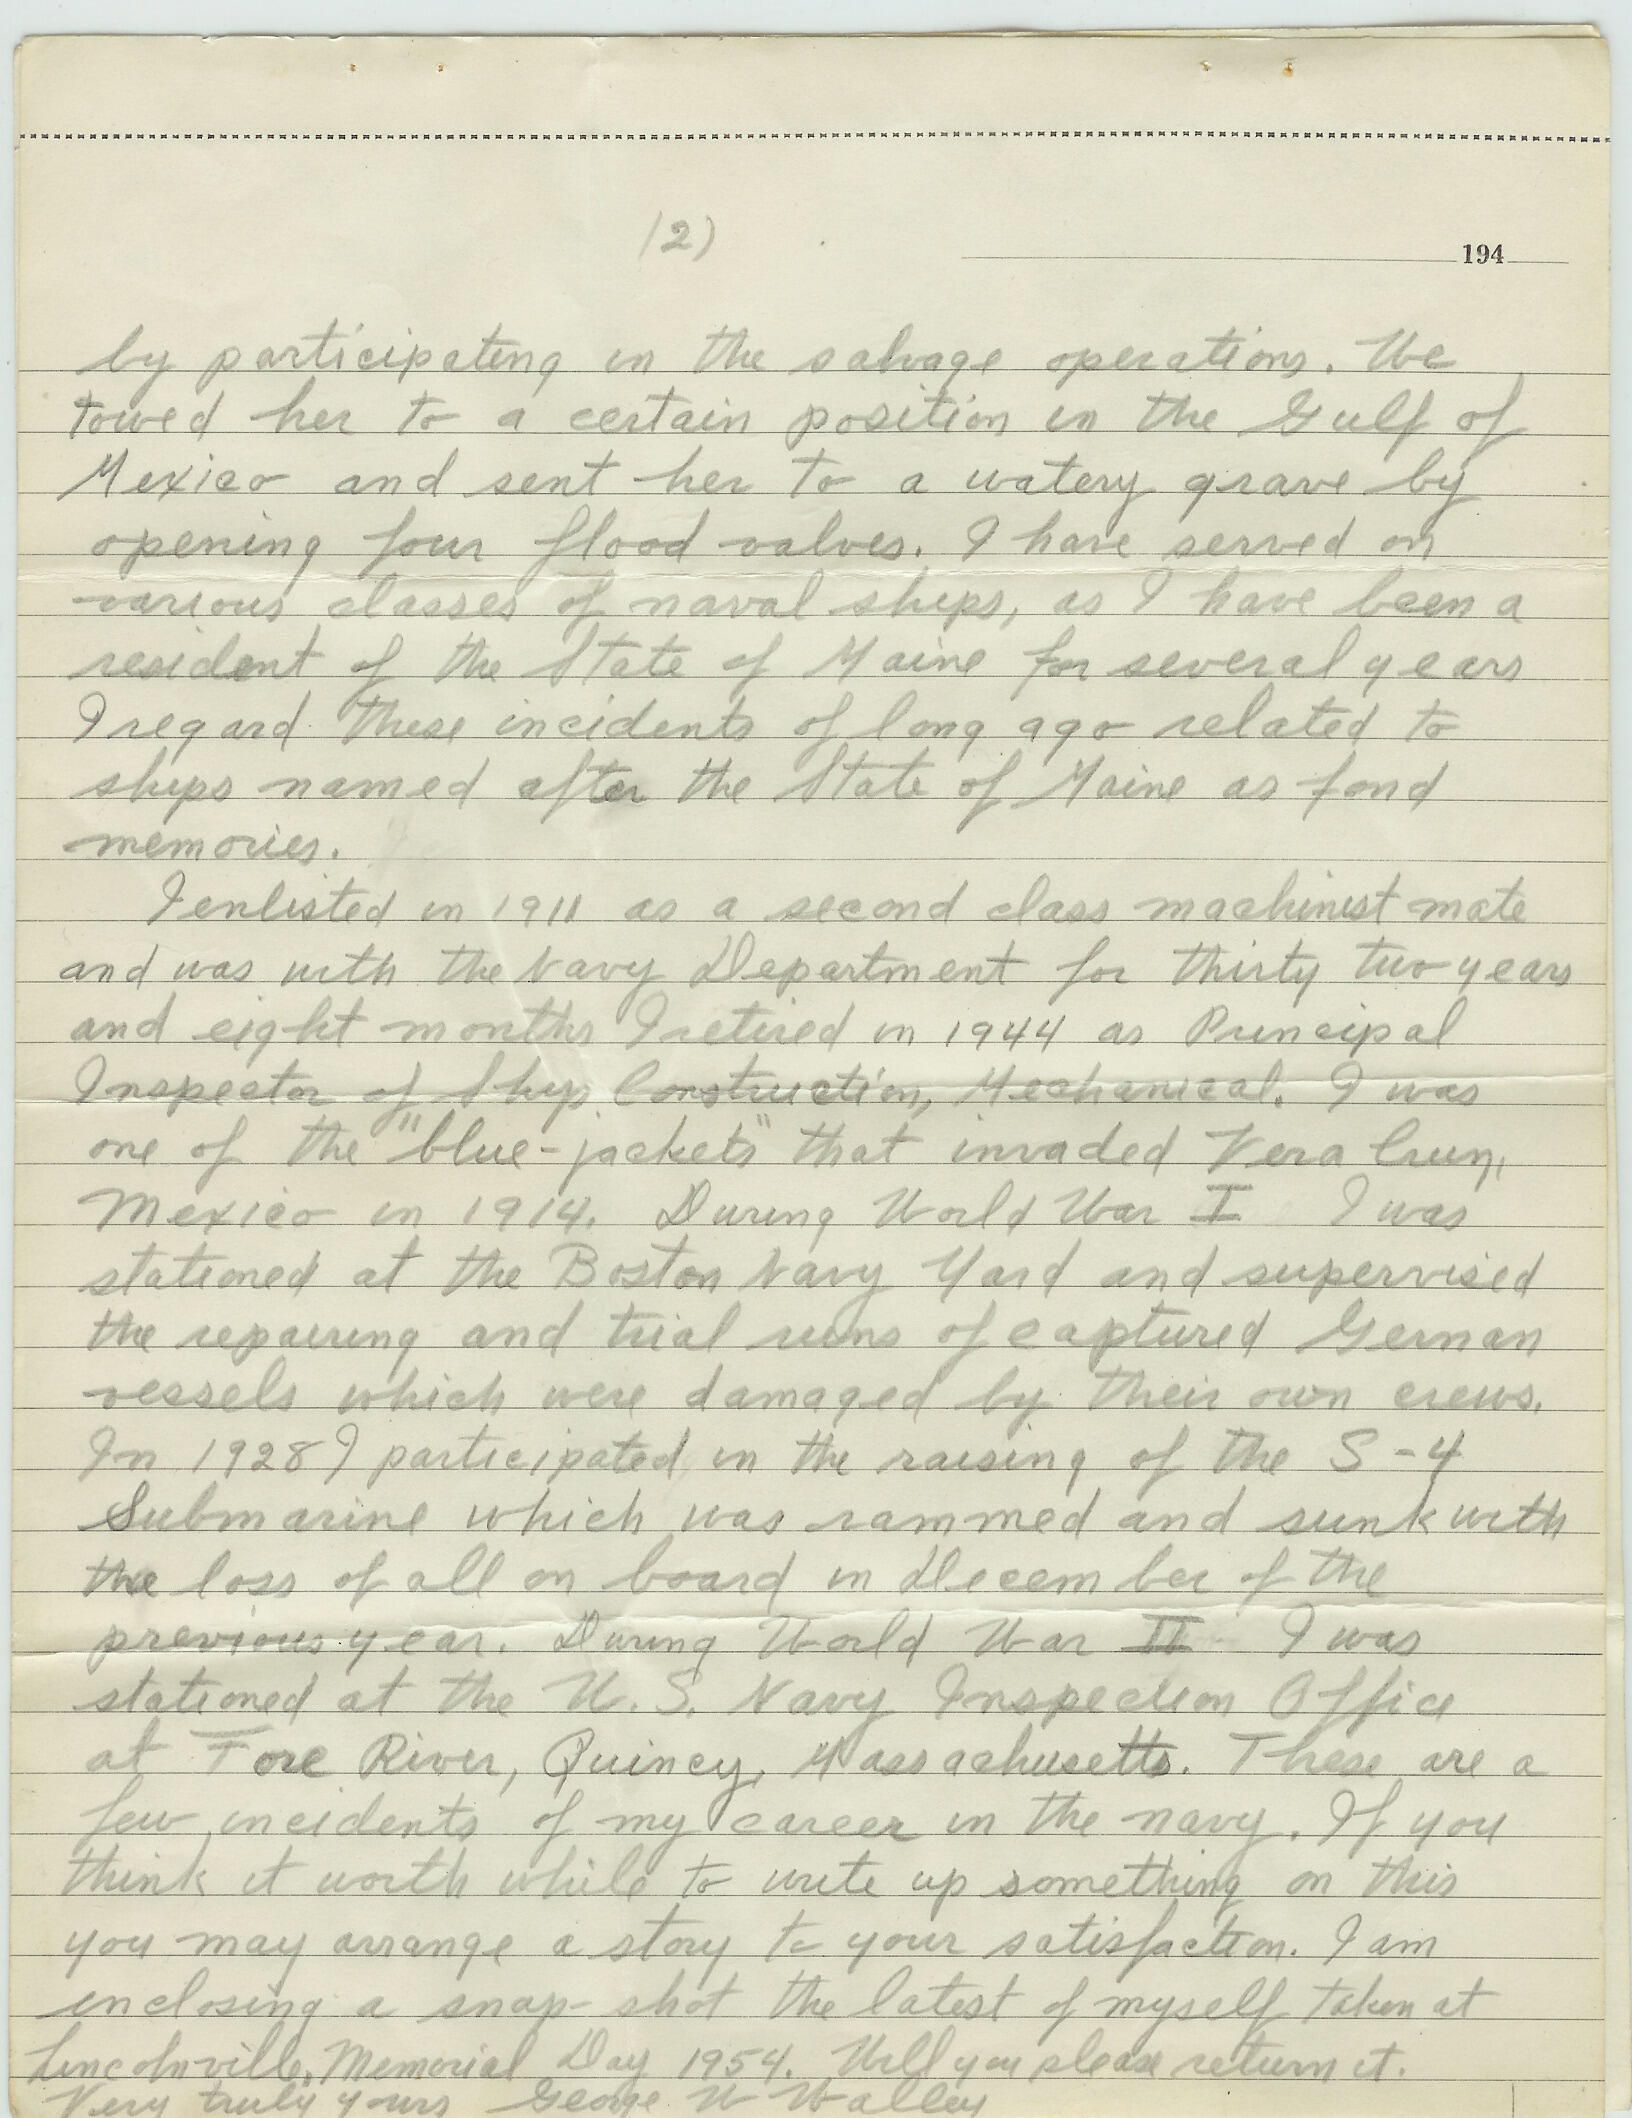 (2)
194
by participating in the salvage operations. We
towed her to a certain position in the Gulf of
Mexico and sent her to a watery grave by
opening four flood valves. I have served on
various classes of naval ships, as I have been a
resident of the State of Maine for several years
I regard these incidents of long ago related to
ships named after the State of Maine as fond
memories.
I enlisted in 1911 as a second class machinist mate
and was with the Navy Department for thirty two years
and eight months I retired in 1944 as Principal
Inspector of Ship Construction, Mechanical. I was
one of the "blue-jackets" that invaded Vera Cruz,
Mexico in 1914. During World War I I was
stationed at the Boston Navy Yard and supervised
the repairing and trial runs of captured German
vessels which were damaged by their own crews.
In 1928 I participated in the raising of the S-4
Submarine which was rammed and sunk with
the loss of all on board in December of the
previous year. During World War II I was
stationed at the U.S. Navy Inspection Office
at Fore River, Quincy, Massachusetts. These are a
few incidents of my career in the navy. If you
think it worth while to write up something on this
you may arrange a story to your satisfaction. I am
enclosing a snap-shot the latest of myself taken at
Lincolnville, Memorial Day 1954. Will you please return it.
Very truly yours George W Walley